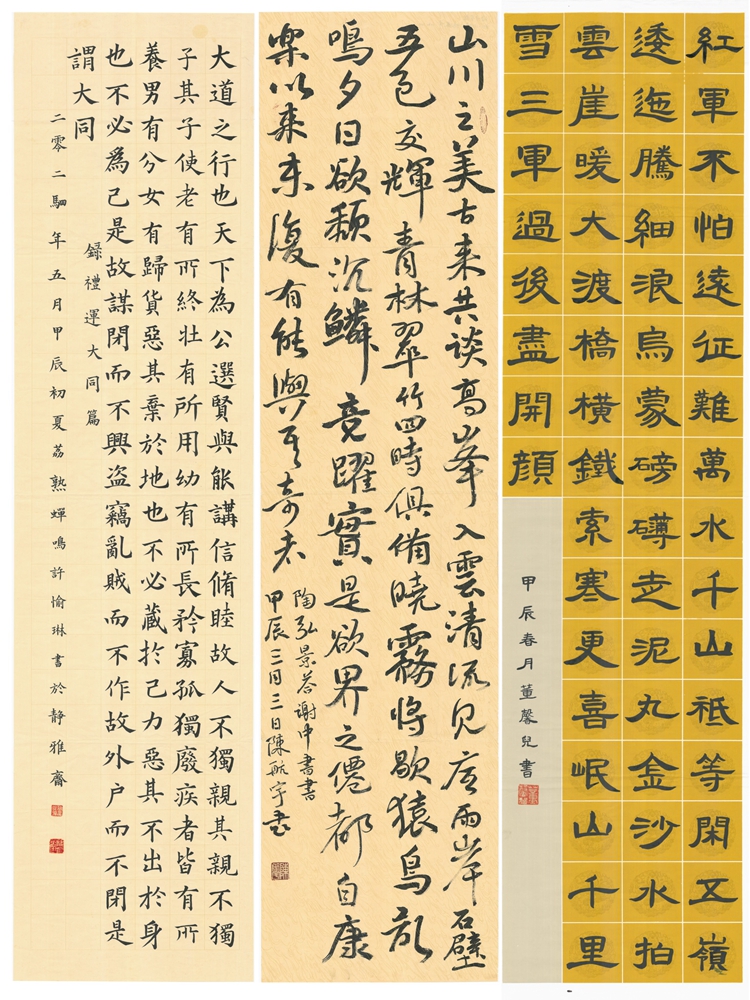 大道之行也天下為公選賢與能講信脩睦故人不獨親其親不獨
子其子使老有所終壯有所用幼有所長矜寡孤獨廢疾者皆有所
養男有分女有歸貨惡其棄於地也不必藏於己力惡其不出於身
也不必為己是故謀閉而不興盜竊亂賊而不作故外户而不閉是
謂大同
錄禮運大同篇
二零二駟年五月甲辰初夏荔熟蟬鳴許愉琳書於靜雅齋
山川之美古來共談高峯入雲清流見底兩岸石壁
五色交輝青林翠竹四時俱備曉霧將歇猿鳥亂
鳴夕日欲頹沉鱗競躍實是欲界之僊都自康
樂以來未復有能與其奇者
陶弘景答謝中書書
甲辰三月三日陳航宇書
紅軍不怕遠征難萬水千山祗等閑五嶺
逶迤騰細浪烏蒙磅礴走泥丸金沙水拍
雲崖暖大渡橋橫鐵索寒更喜岷山千里
雪三軍過後盡開顏
甲辰春月董馨兒書